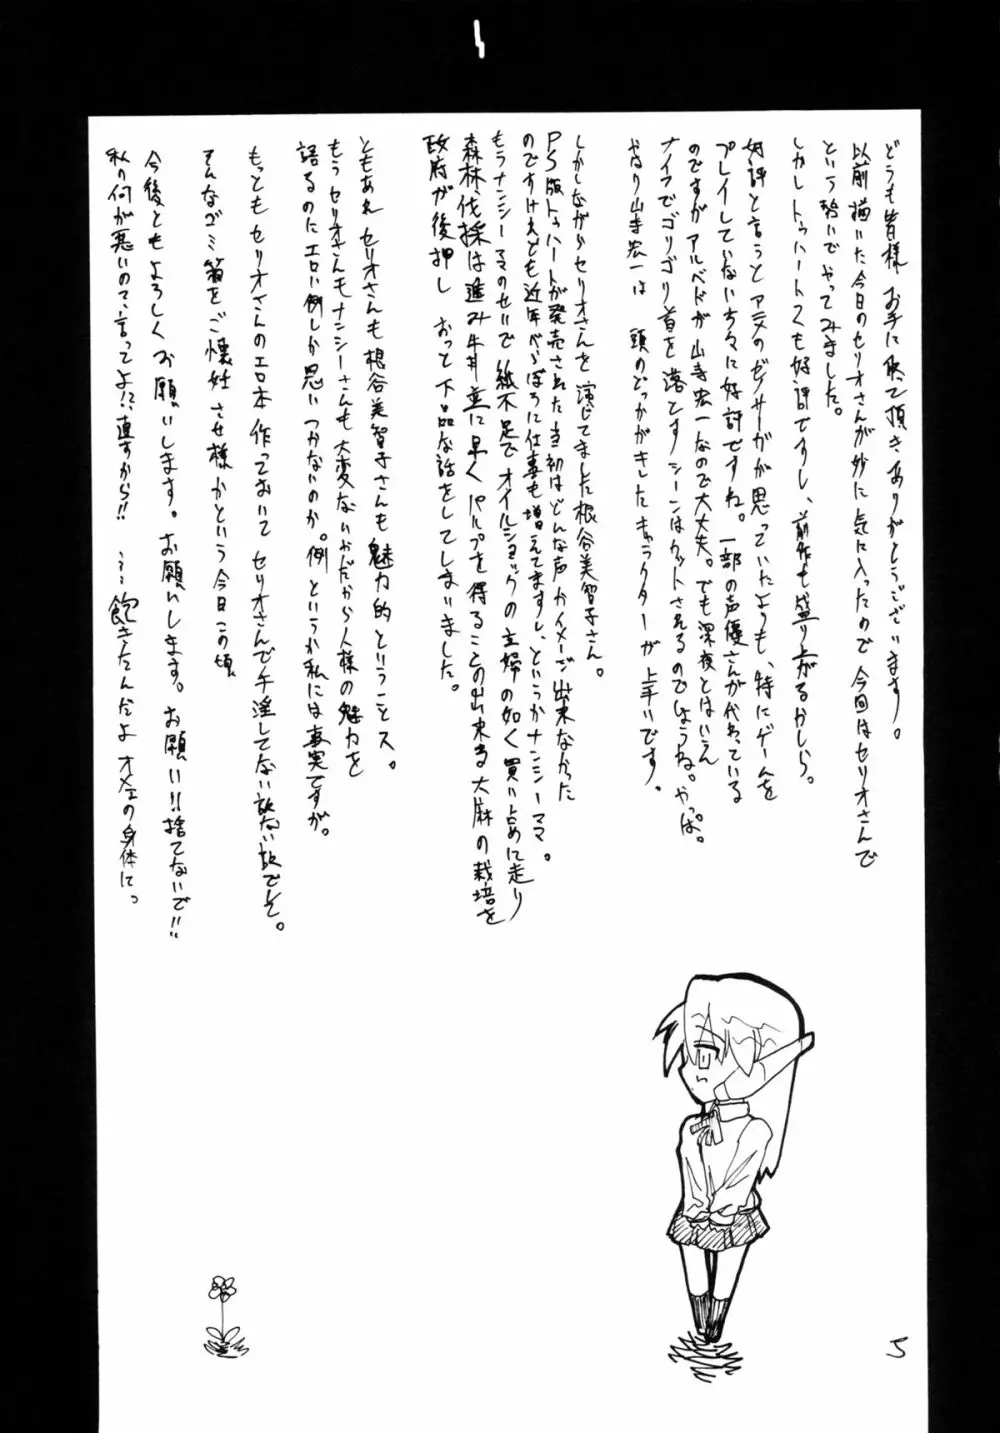 どうも皆様 お手に取って頂きありがとうございます。
以前描いた今日のセリオさんが妙に気に入ったので今回はセリオさんで
という勢いでやってみました。
しかしトゥハート2も好評ですし、前作も盛り上がるかしら。
好評と言うとアニメのゼノサーガが思っていたよりも、特にゲームを
プレイしていない方々に好評ですね。一部の声優さんが代わっている
のですがアルベドが山寺宏一なので大丈夫。でも深夜とはいえ
ナイフでゴリゴリ首を落とすシーンはカットされるのでしょうね。やっぱ。
やはり山寺宏一は 頭のどっかがキレたキャラクターが上手いです。
しかしながらセリオさんを演じてました根谷美智子さん。
PS版トゥハートが発売された当初はどんな声かイメージ出来なかった
のですけれども近年べらぼうに仕事も増えてますし、というかナンシーママ。
もうナンシーママのせいで紙不足でオイルショックの主婦の如く買い占めに走り
森林伐採は進み牛丼並に早くパルプを得ることの出来る大麻の栽培を
政府が後押し おっと下品な話をしてしまいました。
ともあれ セリオさんも根谷美智子さんも魅力的ということス。
もうセリオさんもナンシーさんも大変ないかだから人様の魅力を
語るのにエロい例しか思いつかないのか。例というか私には事実ですが。
もっともセリオさんのエロ本作っておいて セリオさんで手淫してない訳ない訳でして。
そんなゴミ箱をご懐妊させ様かという今日この頃
今後ともよろしくお願いします。お願いします。お願い!!捨てないで!!
私の何が悪いの?言ってよ!?直すから!! …飽きたんだよ オメェの身体にっ
5